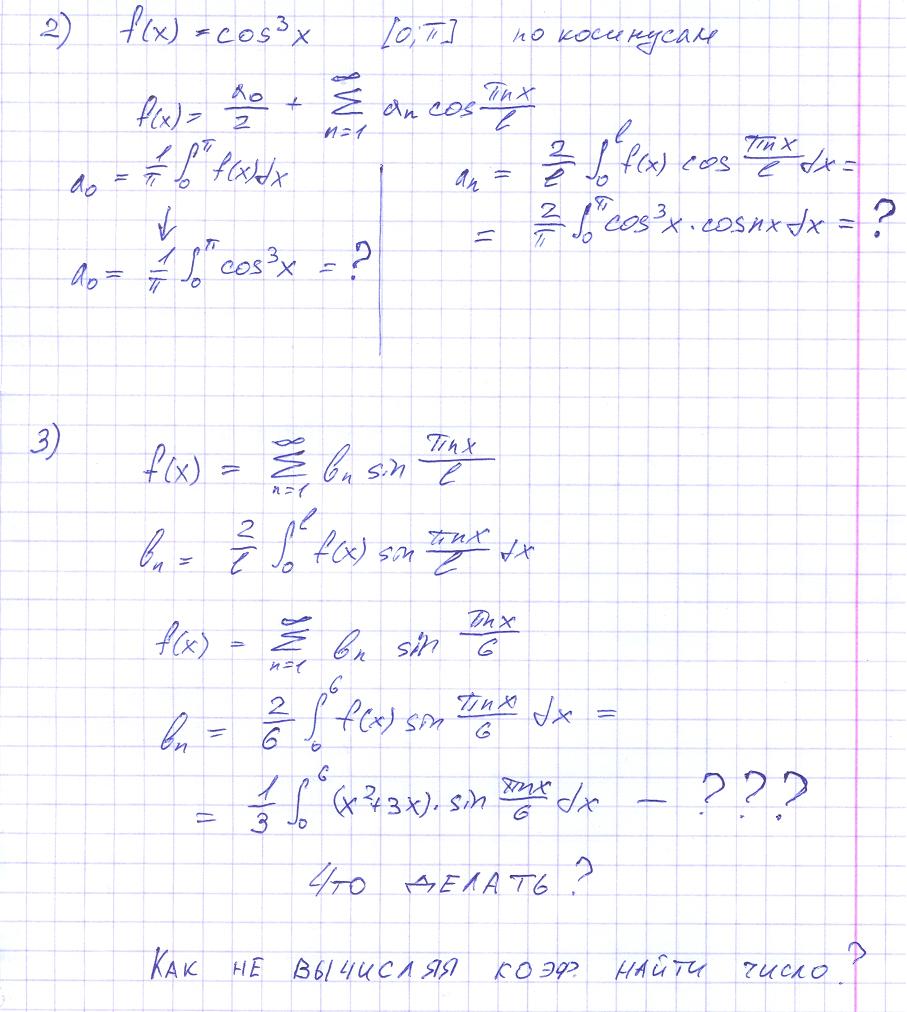 2) f(x) = cos³x [0; π] по косинусам
f(x) = a₀/2 + ∑_{n=1}^{∞} aₙ cos πnx/l
a₀ = 1/π ∫₀^π f(x)dx
↓
a₀ = 1/π ∫₀^π cos³x = ?
aₙ = 2/l ∫₀^l f(x) cos πnx/l dx =
= 2/π ∫₀^π cos³x · cosnx dx = ?
3) f(x) = ∑_{n=1}^{∞} bₙ sin πnx/l
bₙ = 2/l ∫₀^l f(x) sin πnx/l dx
f(x) = ∑_{n=1}^{∞} bₙ sin πnx/6
bₙ = 2/6 ∫₀^6 f(x) sin πnx/6 dx =
= 1/3 ∫₀^6 (x²+3x) · sin πnx/6 dx — ???
Что ДЕЛАТЬ?
КАК НЕ ВЫЧИСЛЯЯ КОЭФ. НАЙТИ ЧИСЛО?